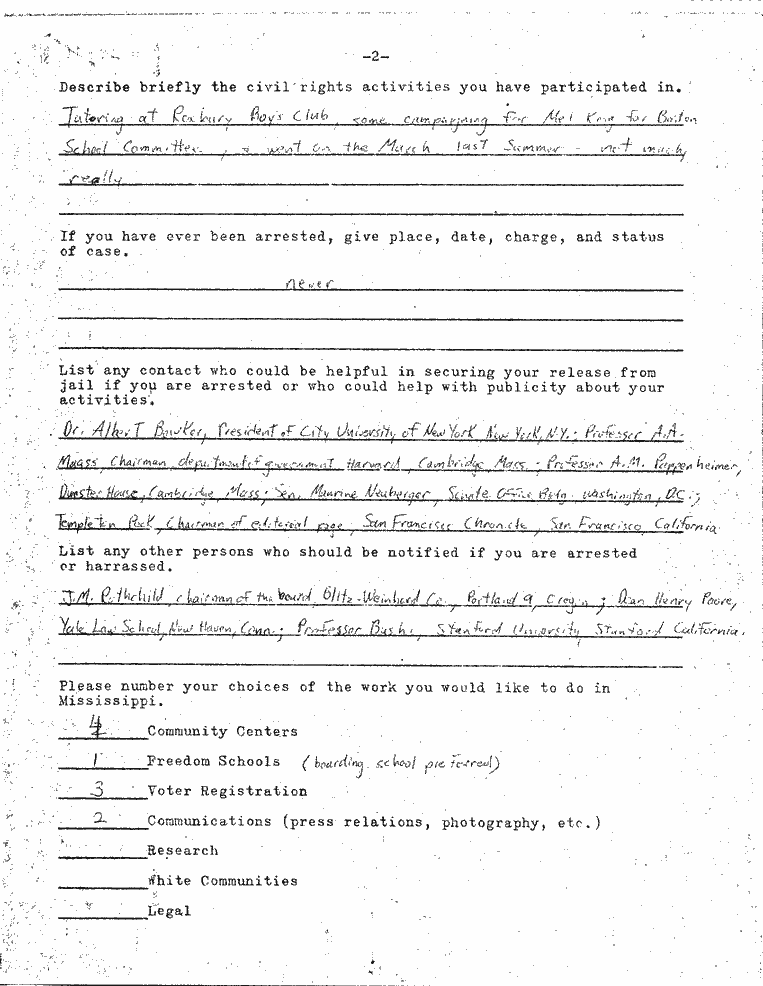 -2-
Describe briefly the civil rights activities you have participated in.
Tutoring at Roxbury Boys Club, some campaigning for Mel King for Boston
School Committee, & went on the March last Summer - not much
really
If you have ever been arrested, give place, date, charge, and status
of case.
never
List any contact who could be helpful in securing your release from
jail if you are arrested or who could help with publicity about your
activities.
Dr. Albert Bowker, President of City University of New York New York, N.Y.; Professor A.A.
Maass, Chairman, department of government Harvard, Cambridge, Mass.; Professor A.M. Pappenheimer,
Dunster House, Cambridge, Mass; Sen. Maurine Neuberger, Senate Office Bldg. Washington, D.C.;
Templeton Peck, Chairman of editorial page, San Francisco Chronicle, San Francisco, California.
List any other persons who should be notified if you are arrested
or harrassed.
J.M. Rothchild, chairman of the board, Blitz-Weinhard Co., Portland 9, Oregon; Dean Henry Poore,
Yale Law School, New Haven, Conn.; Professor Stanford University Stanford California.
Please number your choices of the work you would like to do in
Mississippi.
4 Community Centers
1 Freedom Schools (boarding school preferred)
3 Voter Registration
2 Communications (press relations, photography, etc.)
Research
White Communities
Legal